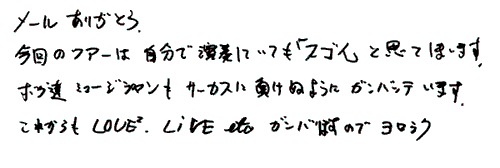 メール ありがとう.
今回のツアーは 自分で演奏していても「スゴイ」と思ってしまいます.
ボク達 ミュージシャンも サーカスに負けぬように ガンバッテいます.
これからも LOVE². LIVE etc ガンバりますので ヨロシク